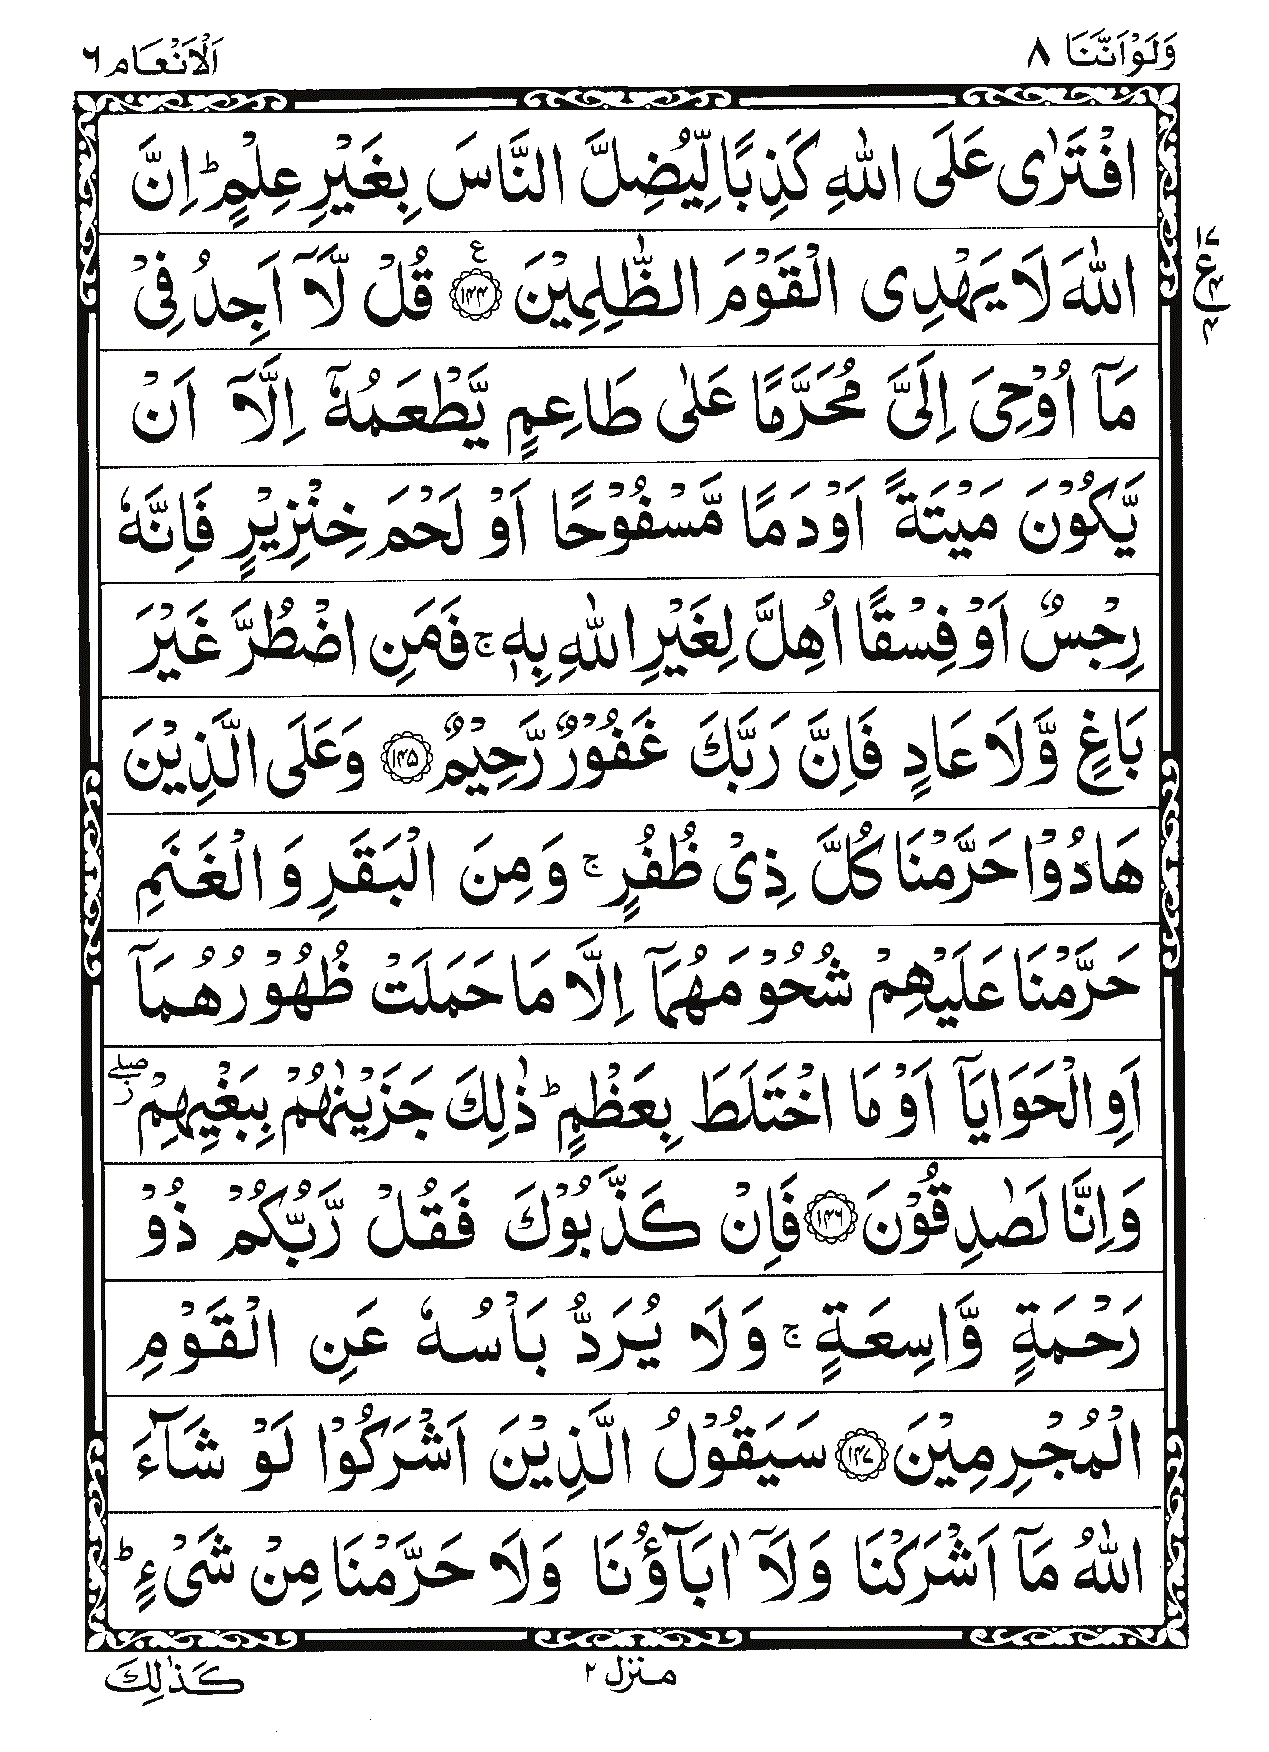 وَلَوْاَنَّنَا ٨
اَلْاَنْعَام ٦
افْتَرٰى عَلَى اللّٰهِ كَذِبًا لِّيُضِلَّ النَّاسَ بِغَيْرِ عِلْمٍ ؕ اِنَّ
اللّٰهَ لَا يَهْدِى الْقَوْمَ الظّٰلِمِيْنَ ﴿۱۴۴﴾ ع قُلْ لَّاۤ اَجِدُ فِىْ
١٧
ع
٤
مَاۤ اُوْحِىَ اِلَىَّ مُحَرَّمًا عَلٰى طَاعِمٍ يَّطْعَمُهٗۤ اِلَّاۤ اَنْ
يَّكُوْنَ مَيْتَةً اَوْ دَمًا مَّسْفُوْحًا اَوْ لَحْمَ خِنْزِيْرٍ فَاِنَّهٗ
رِجْسٌ اَوْ فِسْقًا اُهِلَّ لِغَيْرِ اللّٰهِ بِهٖ ۚ فَمَنِ اضْطُرَّ غَيْرَ
بَاغٍ وَّلَا عَادٍ فَاِنَّ رَبَّكَ غَفُوْرٌ رَّحِيْمٌ ﴿۱۴۵﴾ وَعَلَى الَّذِيْنَ
هَادُوْا حَرَّمْنَا كُلَّ ذِىْ ظُفُرٍ ۚ وَمِنَ الْبَقَرِ وَالْغَنَمِ
حَرَّمْنَا عَلَيْهِمْ شُحُوْمَهُمَاۤ اِلَّا مَا حَمَلَتْ ظُهُوْرُهُمَاۤ
اَوِ الْحَوَايَاۤ اَوْ مَا اخْتَلَطَ بِعَظْمٍ ؕ ذٰلِكَ جَزَيْنٰهُمْ بِبَغْيِهِمْ ۖ ز
وَاِنَّا لَصٰدِقُوْنَ ﴿۱۴۶﴾ فَاِنْ كَذَّبُوْكَ فَقُلْ رَّبُّكُمْ ذُوْ
رَحْمَةٍ وَّاسِعَةٍ ۚ وَلَا يُرَدُّ بَاْسُهٗ عَنِ الْقَوْمِ
الْمُجْرِمِيْنَ ﴿۱۴۷﴾ سَيَقُوْلُ الَّذِيْنَ اَشْرَكُوْا لَوْ شَآءَ
اللّٰهُ مَاۤ اَشْرَكْنَا وَلَاۤ اٰبَآؤُنَا وَلَا حَرَّمْنَا مِنْ شَىْءٍ ؕ
منزل ٢
كَذٰلِكَ